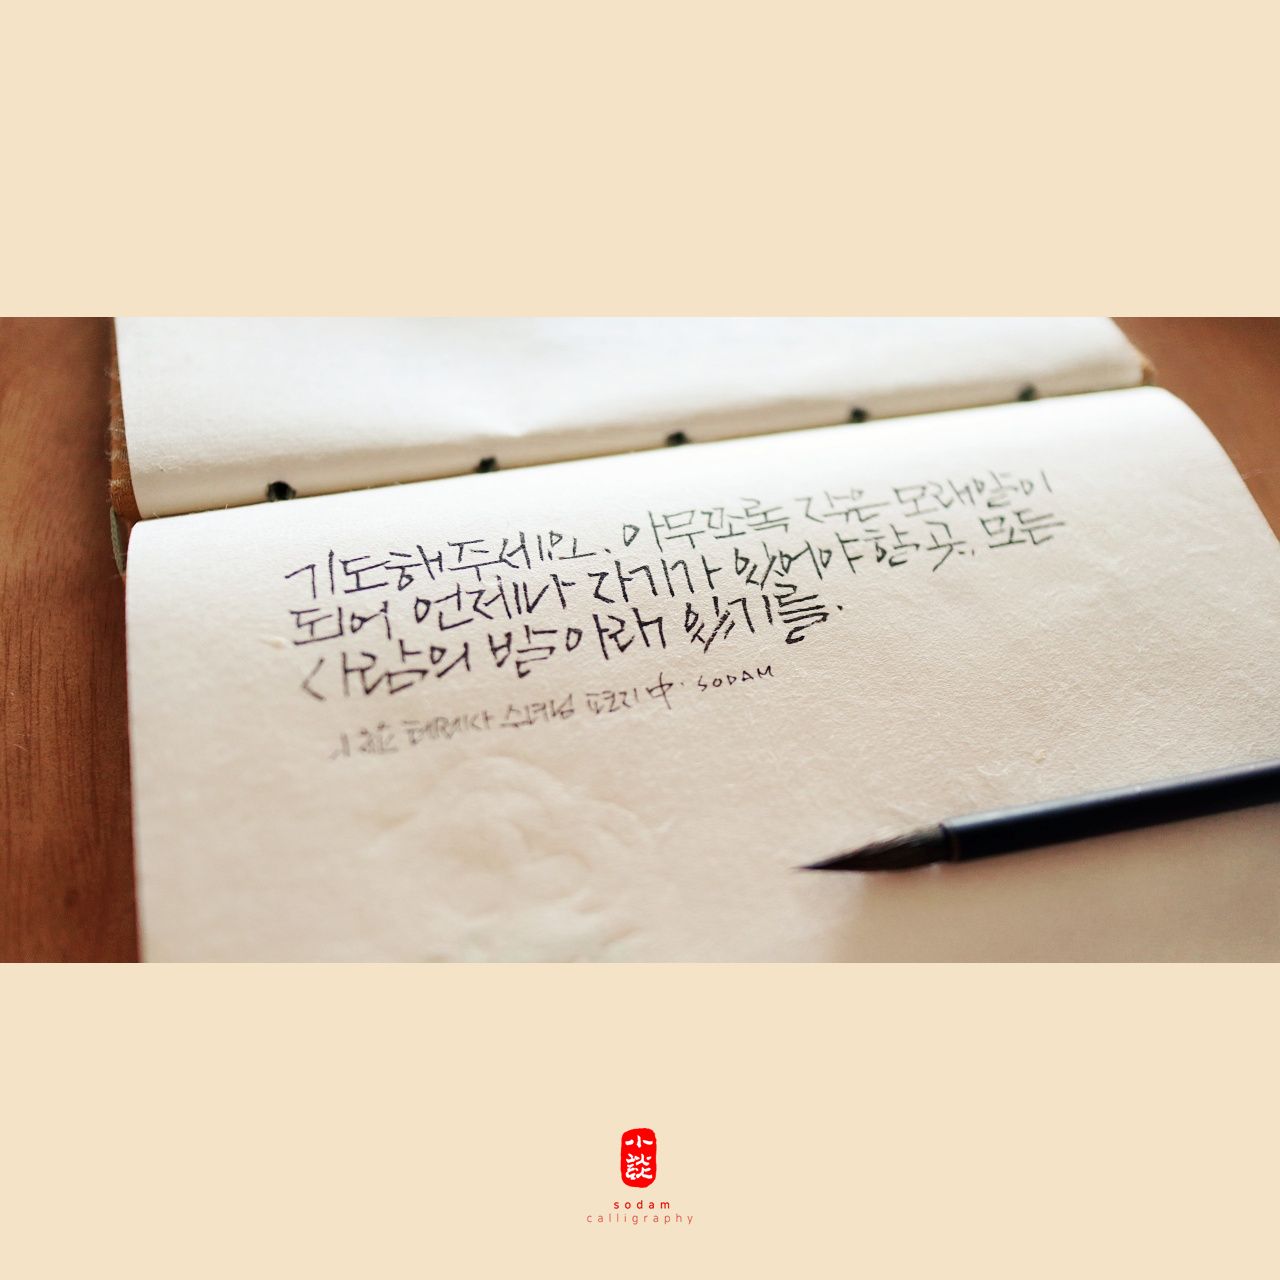 기도해주세요. 아무쪼록 작은 모래알이
되어 언제나 자기가 있어야 할 곳, 모든
사람의 발 아래 있기를.
테레사 수녀님 편지 中. SODAM
小
談
sodam
calligraphy